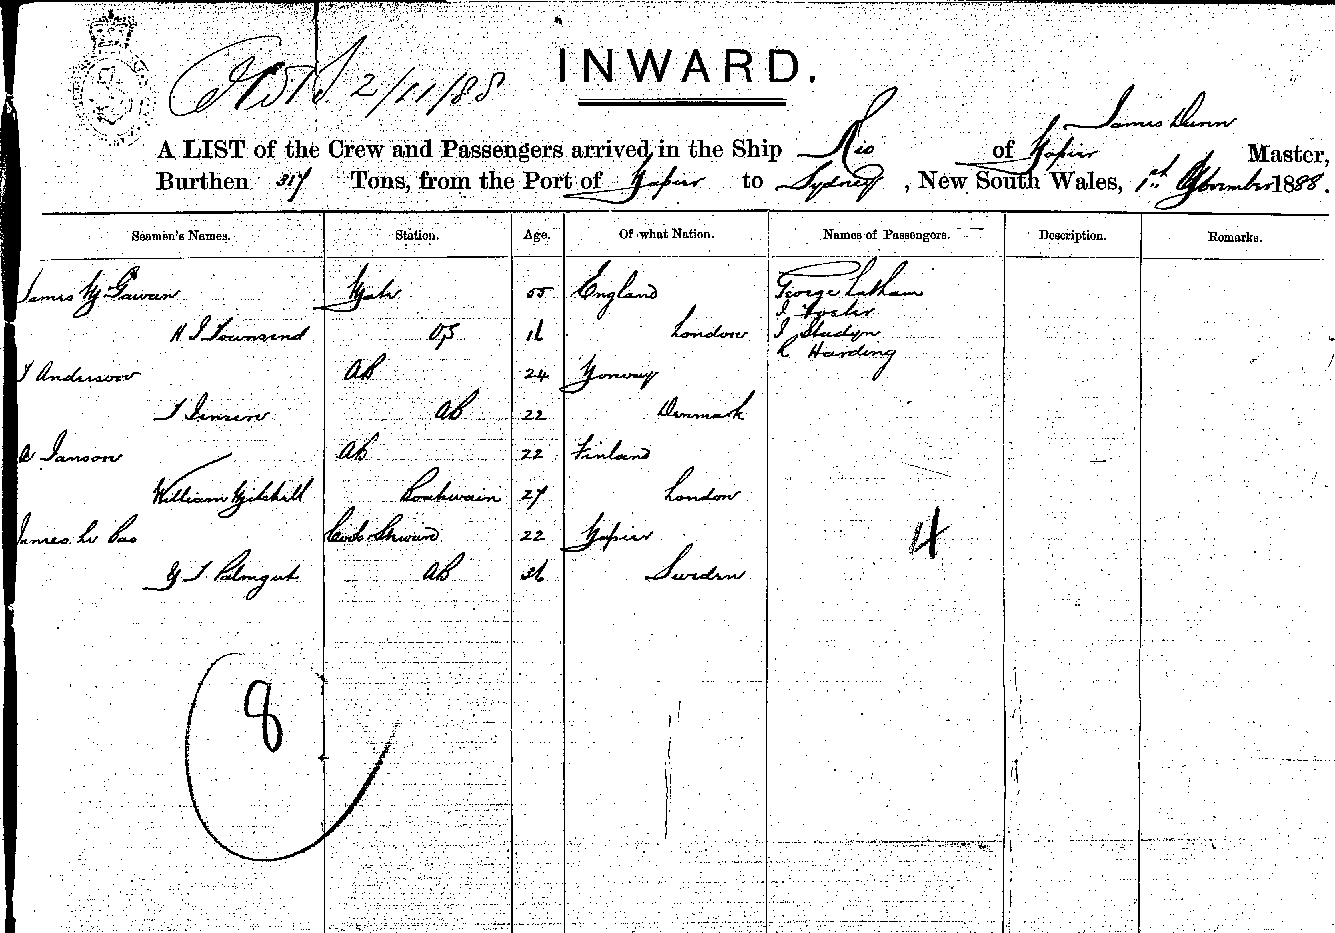 2/11/88
INWARD.
James Dunn
A LIST of the Crew and Passengers arrived in the Ship Rio of Napier Master,
Burthen 317 Tons, from the Port of Napier to Sydney, New South Wales, 1st November 1888.
Seamen's Names. Station. Age. Of what Nation. Names of Passengers. Description. Remarks.
James Mc Gawan Mate 55 England George Latham
J Foster
H J Townsend OS 16 London J Sladyn
R Harding
J Anderson AB 24 Norway
J Jensen AB 22 Denmark
A Janson AB 22 Finland
William Boatswain 27 London
James Le Bas Cook & Steward 22 Napier
AB 36 Sweden
4
8